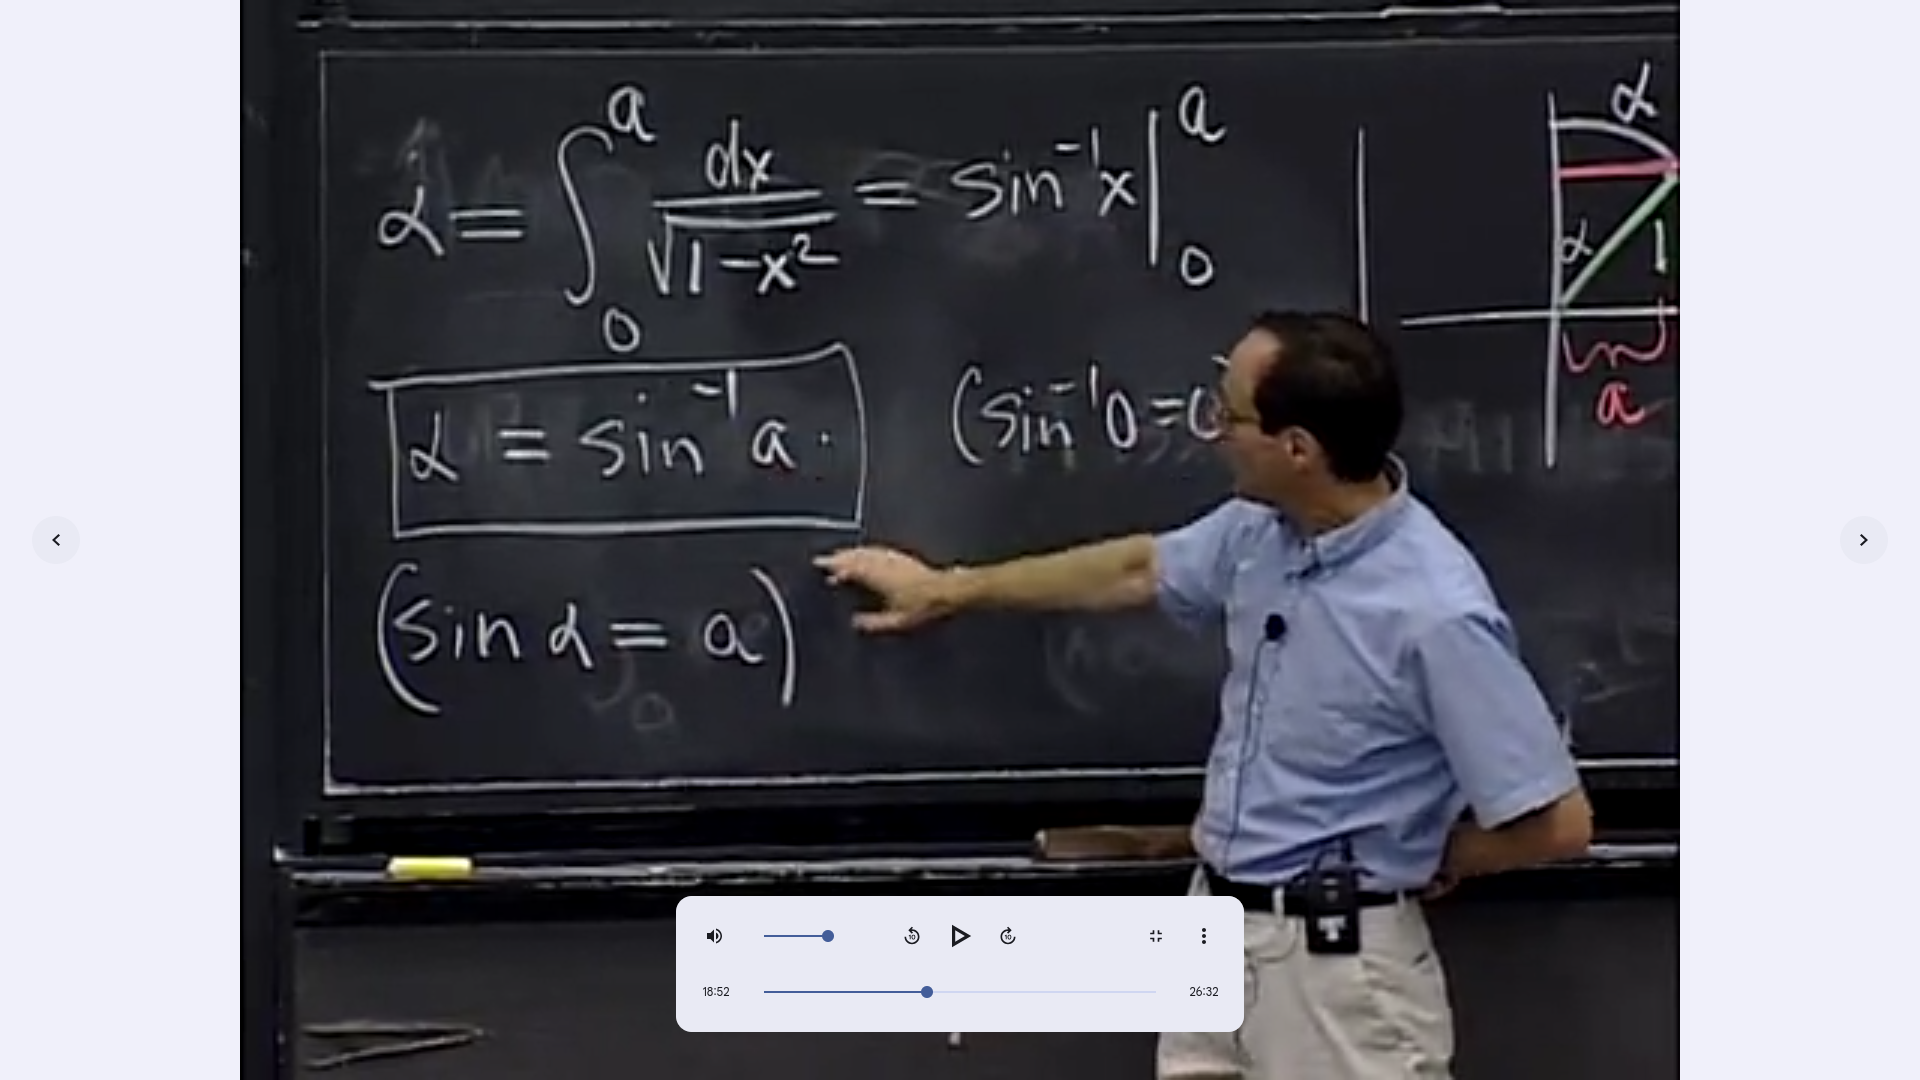 α = ∫₀ᵃ dx/√(1-x²) = sin⁻¹x |₀ᵃ
α = sin⁻¹ a.
(sin⁻¹ 0 =
(sin α = a)
α
α
1
a
18:52
26:32